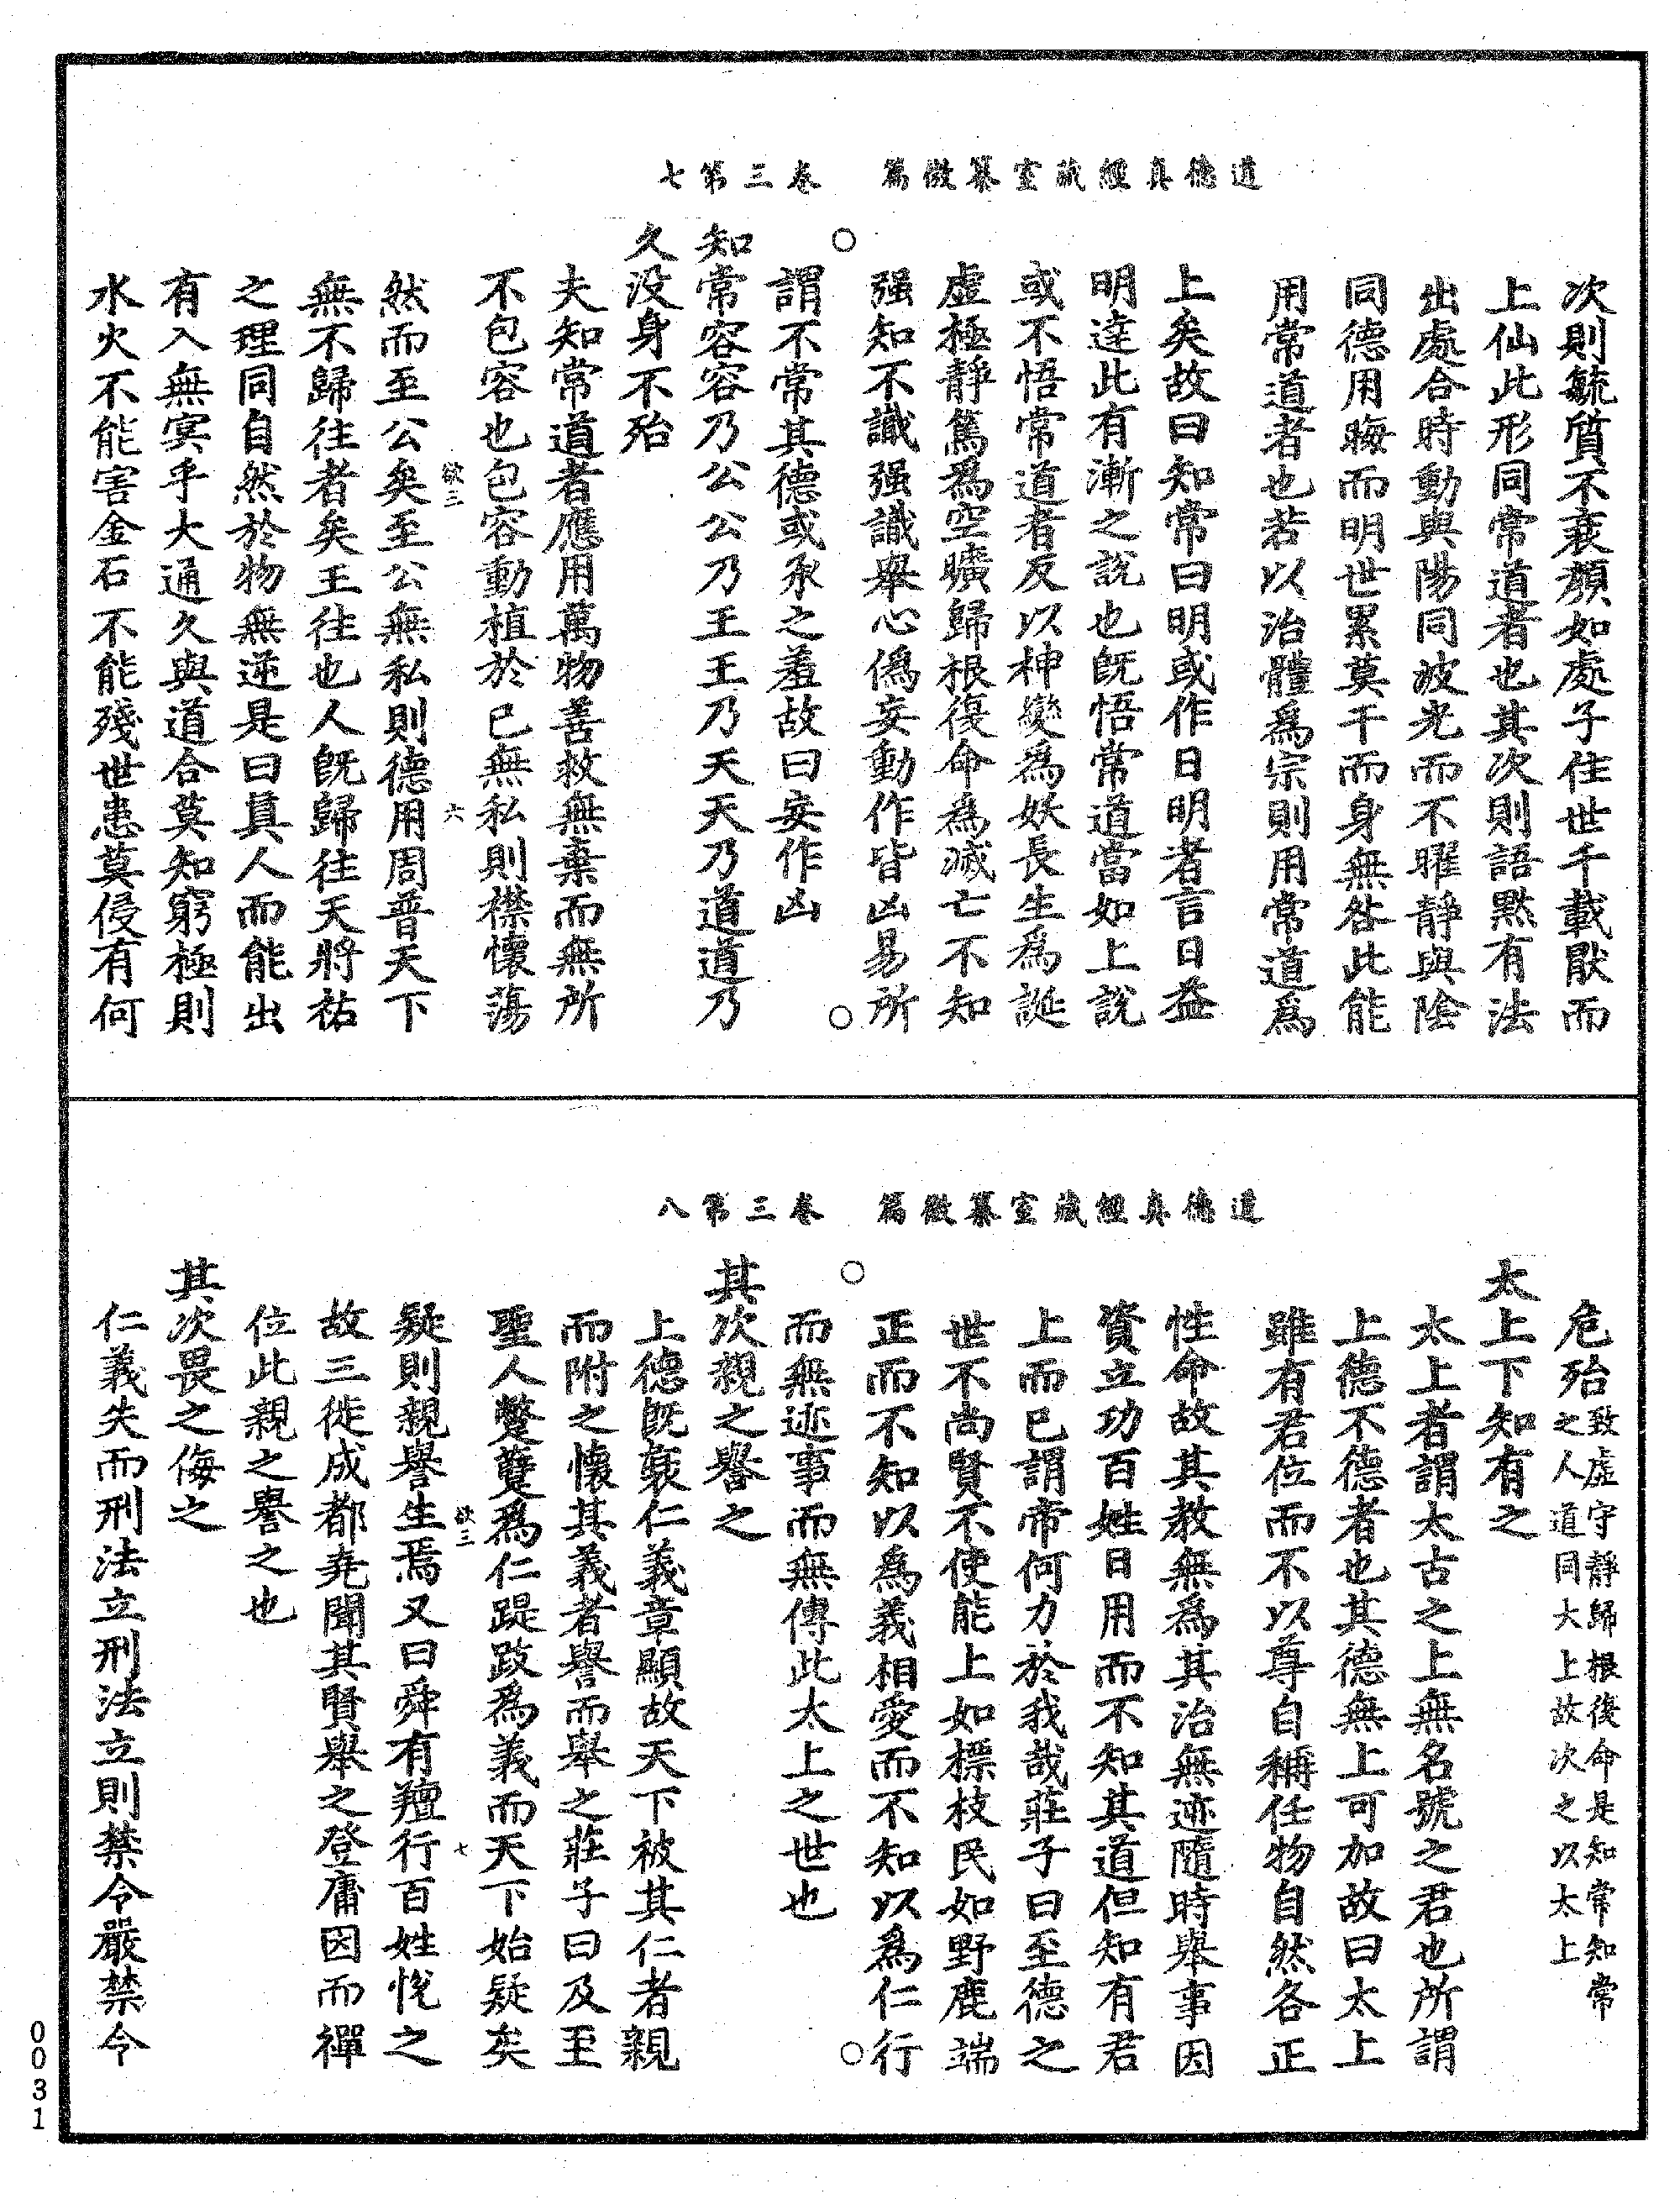 道德真經藏室纂微篇　卷三第七
次則毓質不衰顏如處子住世千載厭而
上仙此形同常道者也其次則語默有法
出處合時動與陽同波光而不曜靜與陰
同德用晦而明世累莫干而身無咎此能
用常道者也若以治體爲宗則用常道爲
上矣故曰知常曰明或作日明者言日益
明達此有漸之說也旣悟常道當如上說
或不悟常道者反以神變爲妖長生爲誕
虛極靜篤爲空曠歸根復命爲滅亡不知
强知不識强識舉心僞妄動作皆凶易所
謂不常其德或承之羞故曰妄作凶
知常容容乃公公乃王王乃天天乃道道乃
久没身不殆
夫知常道者應用萬物善救無棄而無所
不包容也包容動植於已無私則襟懷蕩
欲三　六
然而至公矣至公無私則德用周普天下
無不歸往者矣王往也人旣歸往天將祐
之理同自然於物無逆是曰真人而能出
有入無冥乎大通久與道合莫知窮極則
水火不能害金石不能殘世患莫侵有何
道德真經藏室纂微篇　卷三第八
危殆致虛守靜歸根復命是知常知常
之人道同大上故次之以太上
太上下知有之
太上者謂太古之上無名號之君也所謂
上德不德者也其德無上可加故曰太上
雖有君位而不以尊自稱任物自然各正
性命故其教無爲其治無迹隨時舉事因
資立功百姓日用而不知其道但知有君
上而已謂帝何力於我哉莊子曰至德之
世不尚賢不使能上如標枝民如野鹿端
正而不知以爲義相愛而不知以爲仁行
而無迹事而無傳此太上之世也
其次親之譽之
上德旣衰仁義章顯故天下被其仁者親
而附之懷其義者譽而舉之莊子曰及至
聖人蹩躠爲仁踶跂爲義而天下始疑矣
欲三　七
疑則親譽生焉又曰舜有羶行百姓悅之
故三徙成都堯聞其賢舉之登庸因而禪
位此親之譽之也
其次畏之侮之
仁義失而刑法立刑法立則禁令嚴禁令
0031